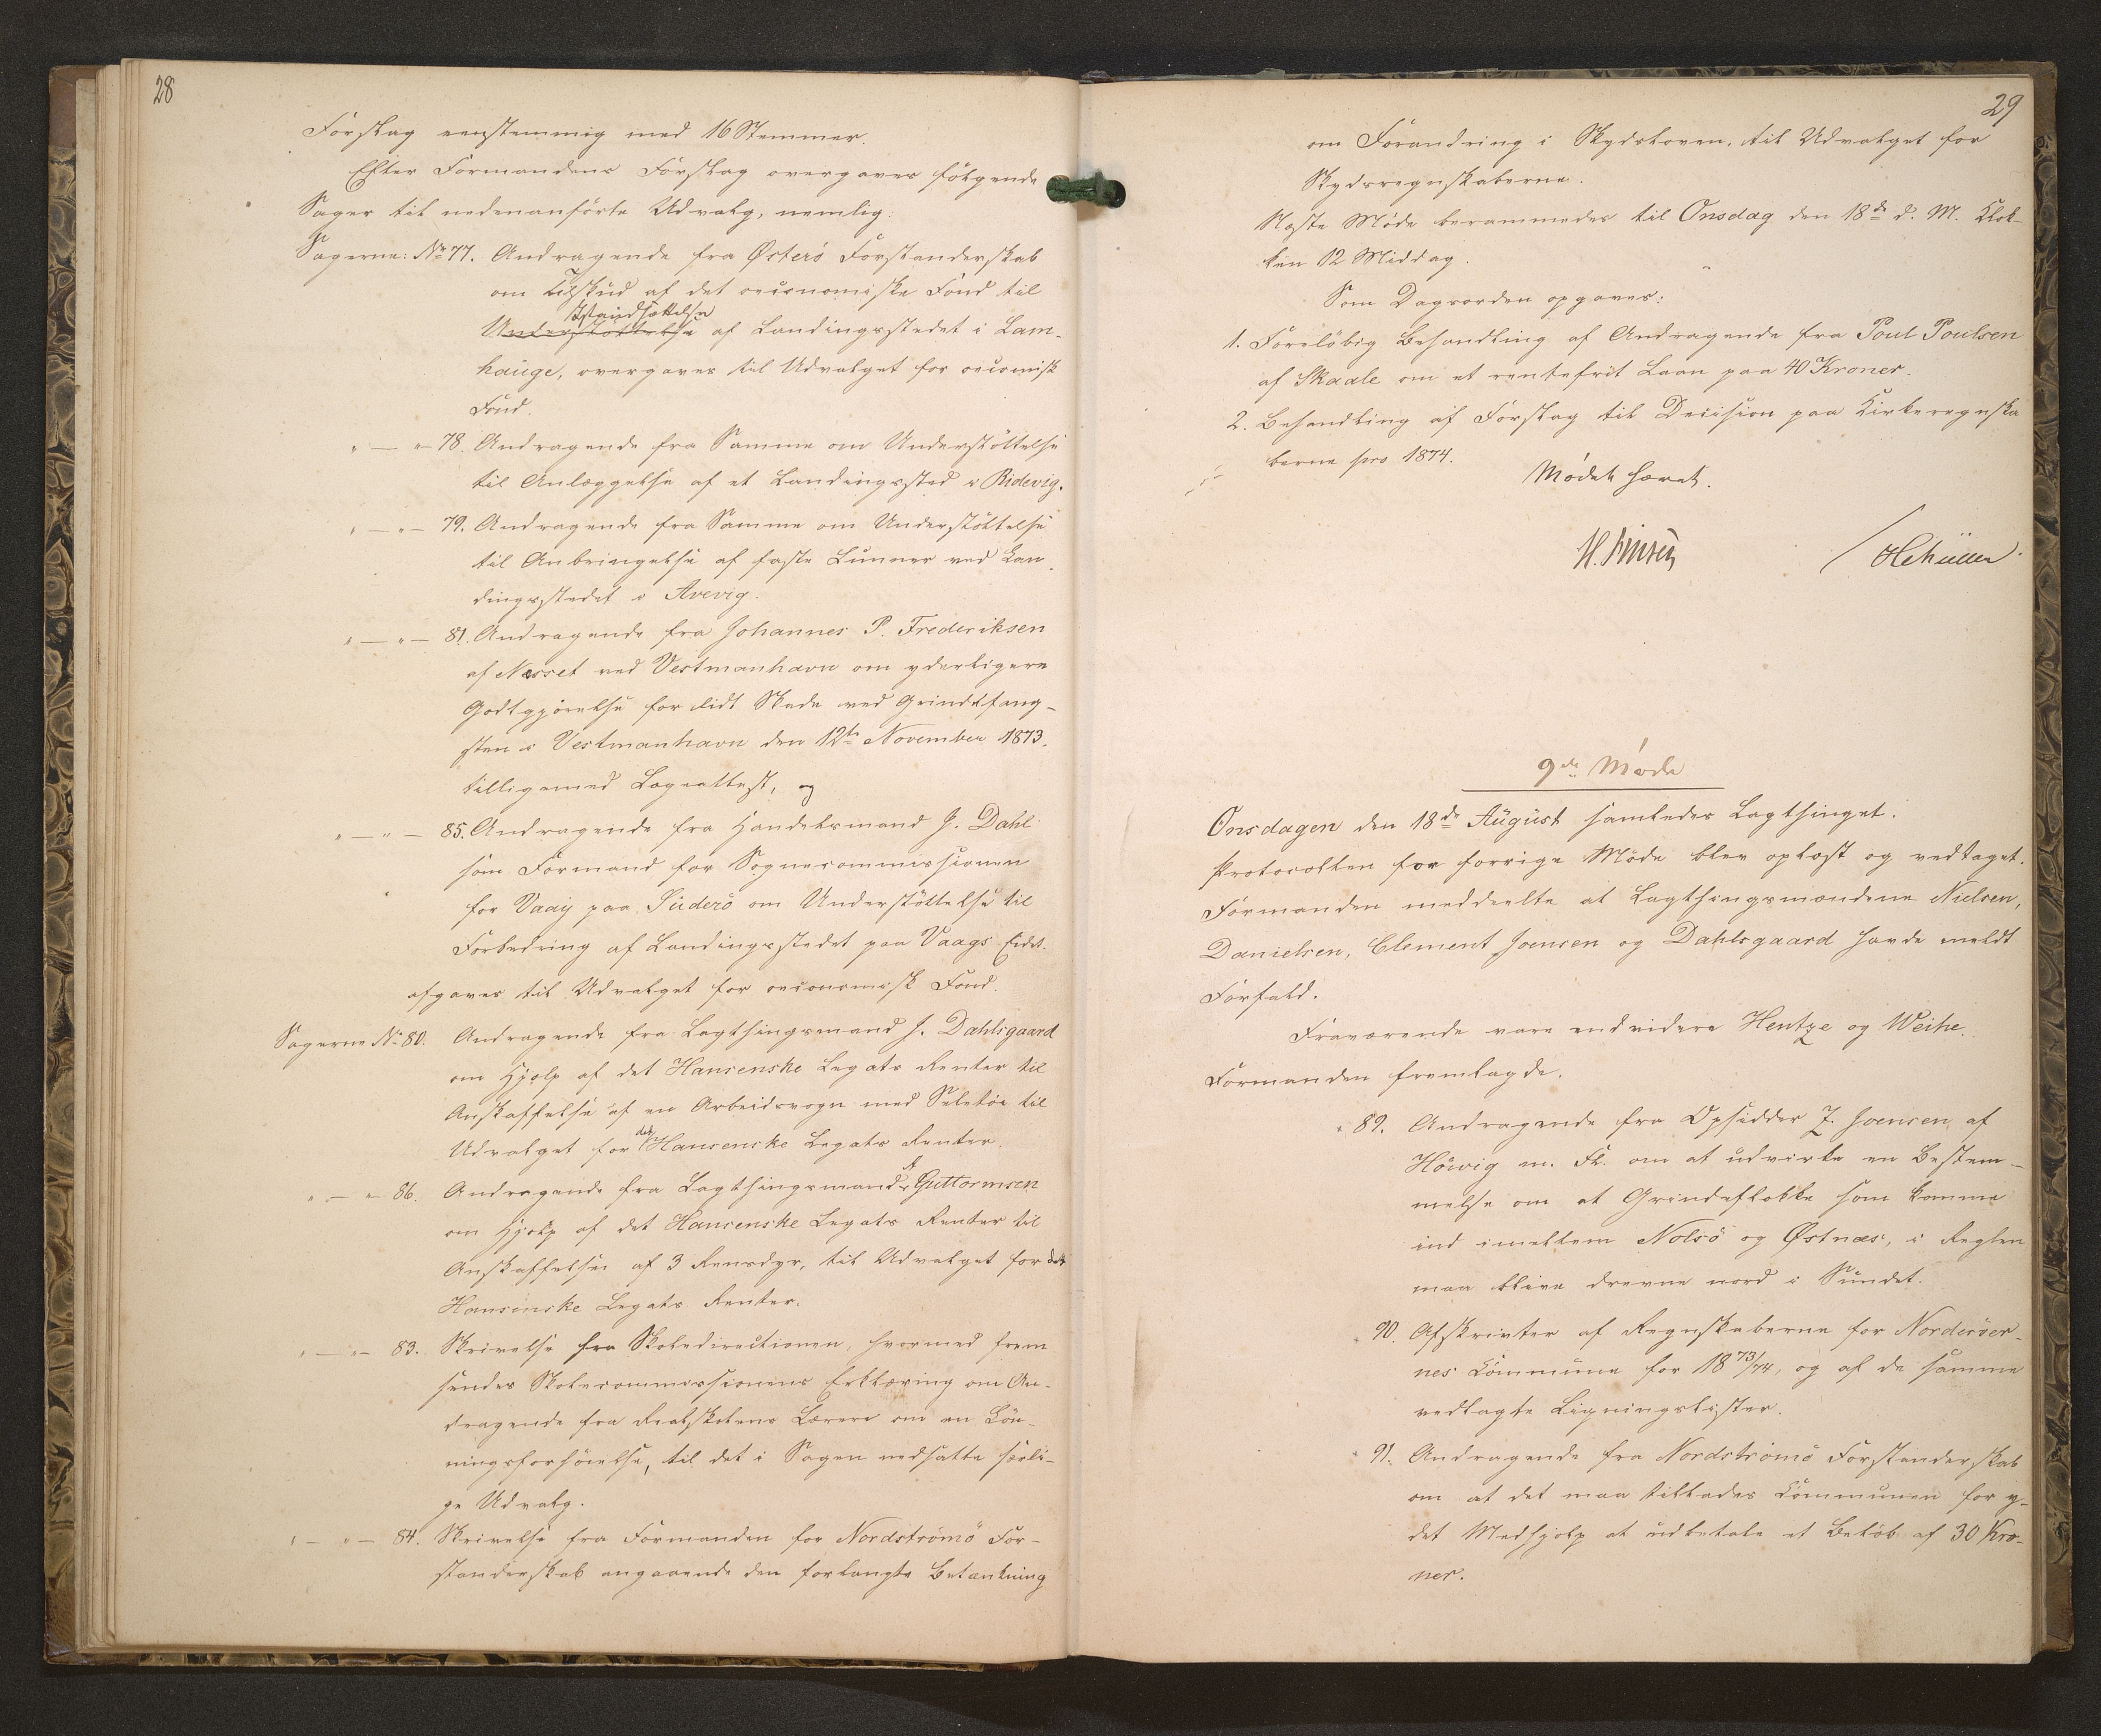 28
Forslag eenstemmig med 16 Stemmer.
Efter Formandens Forslag overgaves følgende
Sager til nedenanførte Udvalg, nemlig.
Sagerne: No 77. Andragende fra Østerö Forstanderskab
om Tilskud af det oeconomiske Fond til
Istandsættelse
Understöttelse af Landingsstedet i Lam-
hauge, overgaves til Udvalget for oecomisk
Fond.
" — " — 78. Andragende fra Samme om Understöttelse
til Anlæggelse af et Landingssted i Ridevig.
" — " — 79. Andragende fra Samme om Understöttelse
til Anbringelse af faste Lunner ved Lan-
dingsstedet i Avevig.
" — " — 81. Andragende fra Johannes P. Frederiksen
af Næsset ved Vestmanhavn om yderligere
Godtgjörelse for lidt Skade ved Grindefang-
sten i Vestmanhavn den 12te November 1873.
tilligemed Lægeattest, og
" — " — 85. Andragende fra Handelsmand J. Dahl
som Formand for Sognecommissionen
for Vaag paa Suderö om Understöttelse til
Forbedring af Landingsstedet paa Vaags Eide.
afgaves til Udvalget for oeconomisk Fond.
Sagerne No 80. Andragende fra Lagthingsmand J. Dahlsgaard
om Hjælp af det Hansenske Legats Renter til
Anskaffelse af en Arbeidsvogn med Seletöi til
Udvalget for det Hansenske Legats Renter.
" — " 86. Andragende fra Lagthingsmand Guttormsen
om Hjælp af det Hansenske Legats Renter til
Anskaffelse af 3 Rensdyr, til Udvalget for det
Hansenske Legats Renter.
" — " — 83. Skrivelse fra Skoledirectionen, hvormed frem
sendes Skolecommissionens Erklæring om An-
dragende fra Realskolens Lærere om en Lön-
ningsforhöielse, til det i Sagen nedsatte særli-
ge Udvalg.
" — " — 84. Skrivelse fra Formanden for Nordströmö For-
standerskab angaaende den forlangte Betænkning
29
om Forandring i Skydsloven, til Udvalget for
Skydsregnskaberne.
Næste Möde berammedes til Onsdag den 18de d. M. Klok-
ken 12 Middag.
Som Dagsorden opgaves:
1. Foreløbig Behandling af Andragende fra Poul Poulsen
af Skaale om et rentefrit Laan paa 40 Kroner.
2. Behandling af Forslag til Decision paa Kirkeregnska
berne pro 1874.
Mödet hævet.
H. Müller
9de Möde
Onsdagen den 18de August samledes Lagthinget.
Protocollen for forrige Möde blev oplæst og vedtaget.
Formanden meddeelte at Lagthingsmændene Nielsen,
Danielsen, Clement Joensen og Dahlsgaard havde meldt
Forfald.
Fraværende vare endvidere Hentze og Weihe.
Formanden fremlagde.
" 89. Andragende fra Opsidder J. Joensen af
Höivig m. Fl. om at udvirke en Bestem-
melse om at Grindeflokke som komme
ind imellem Nolsö og Østnæs, i Reglen
maa blive drevne nord i Sundet.
" 90. Afskrivter af Regnskaberne for Norderöer-
nes Commune for 1873/74, og af de samme
vedlagte Ligningslister.
" 91. Andragende fra Nordströmö Forstanderskab
om at det maa tillades Communen for y-
det Medhjælp at udbetale et Belöb af 30 Kro-
ner.